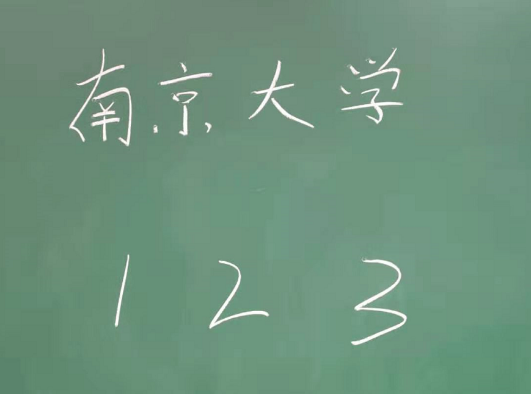 南京大学
1 2 3